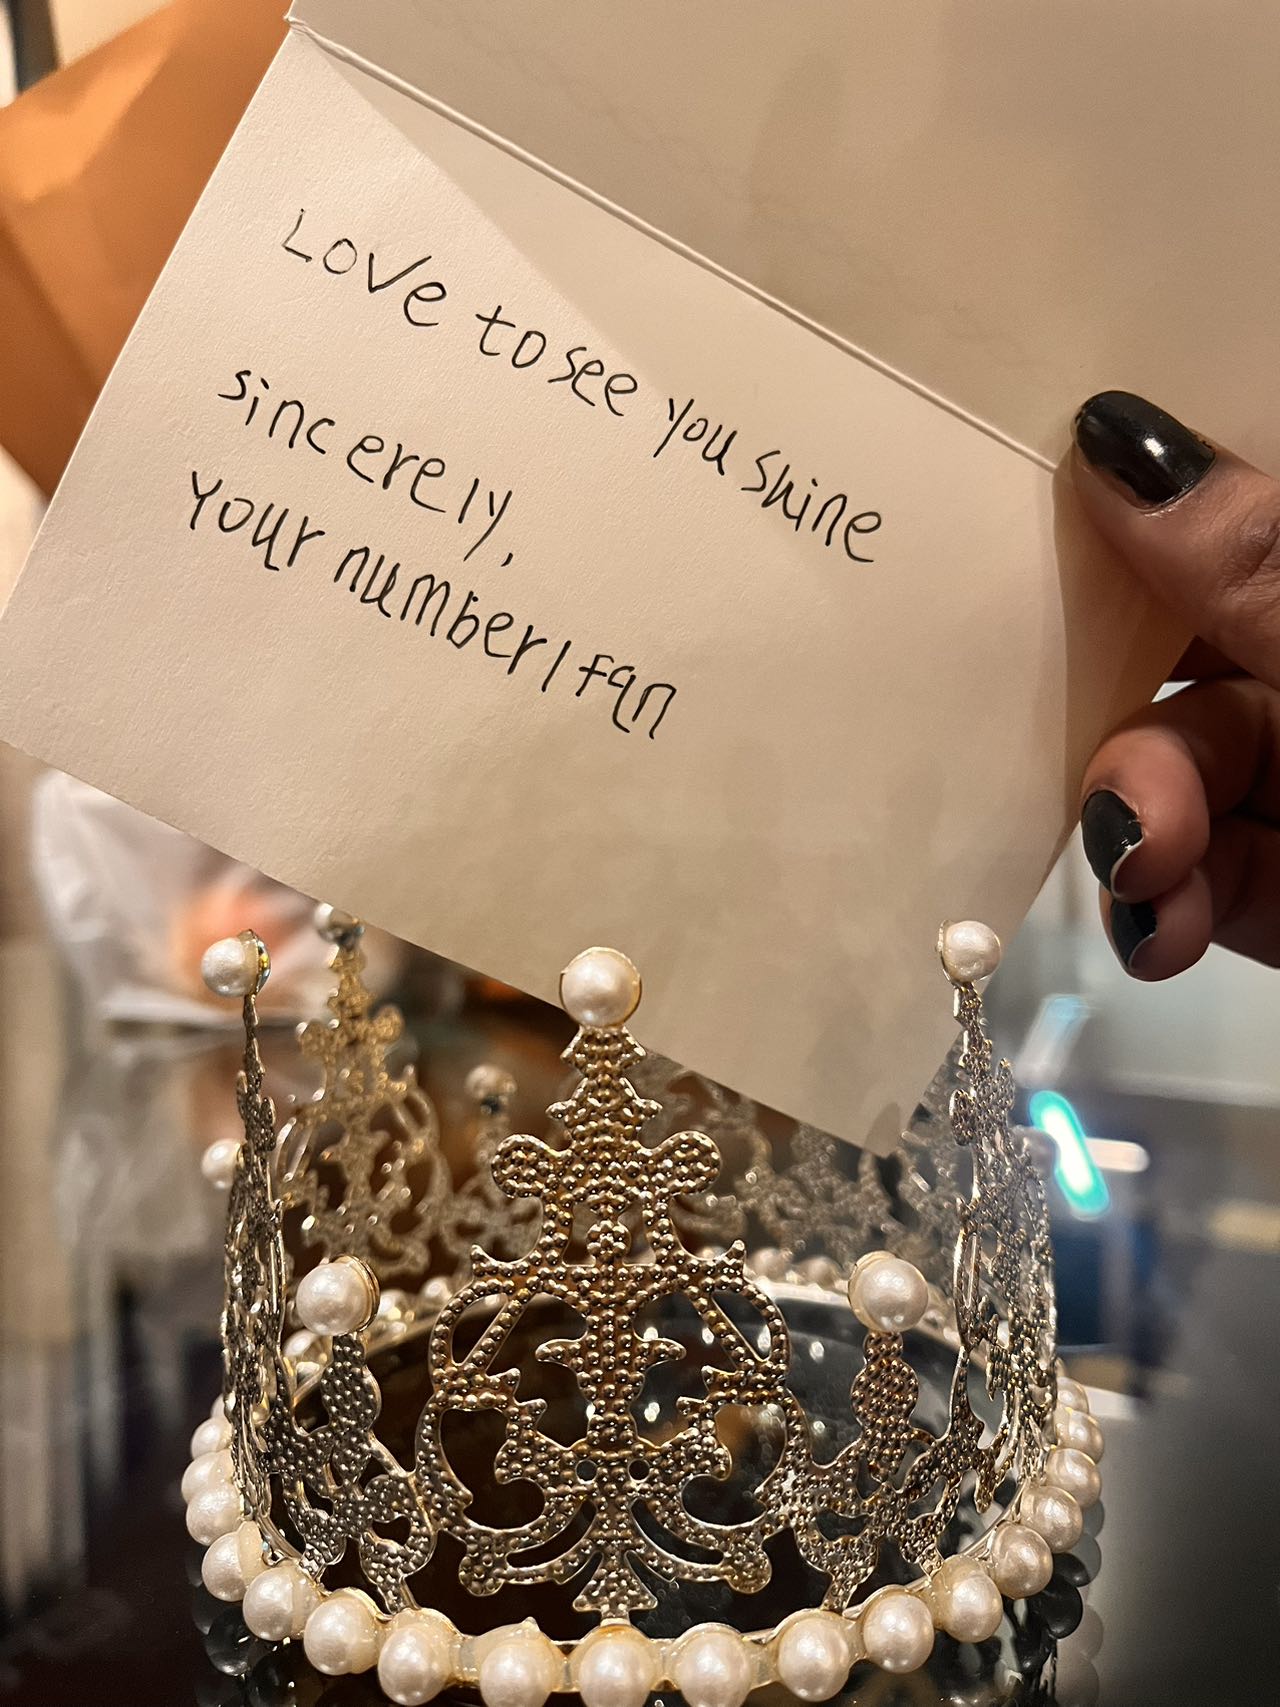 Love to see you shine
sincerely,
Your number 1 fan